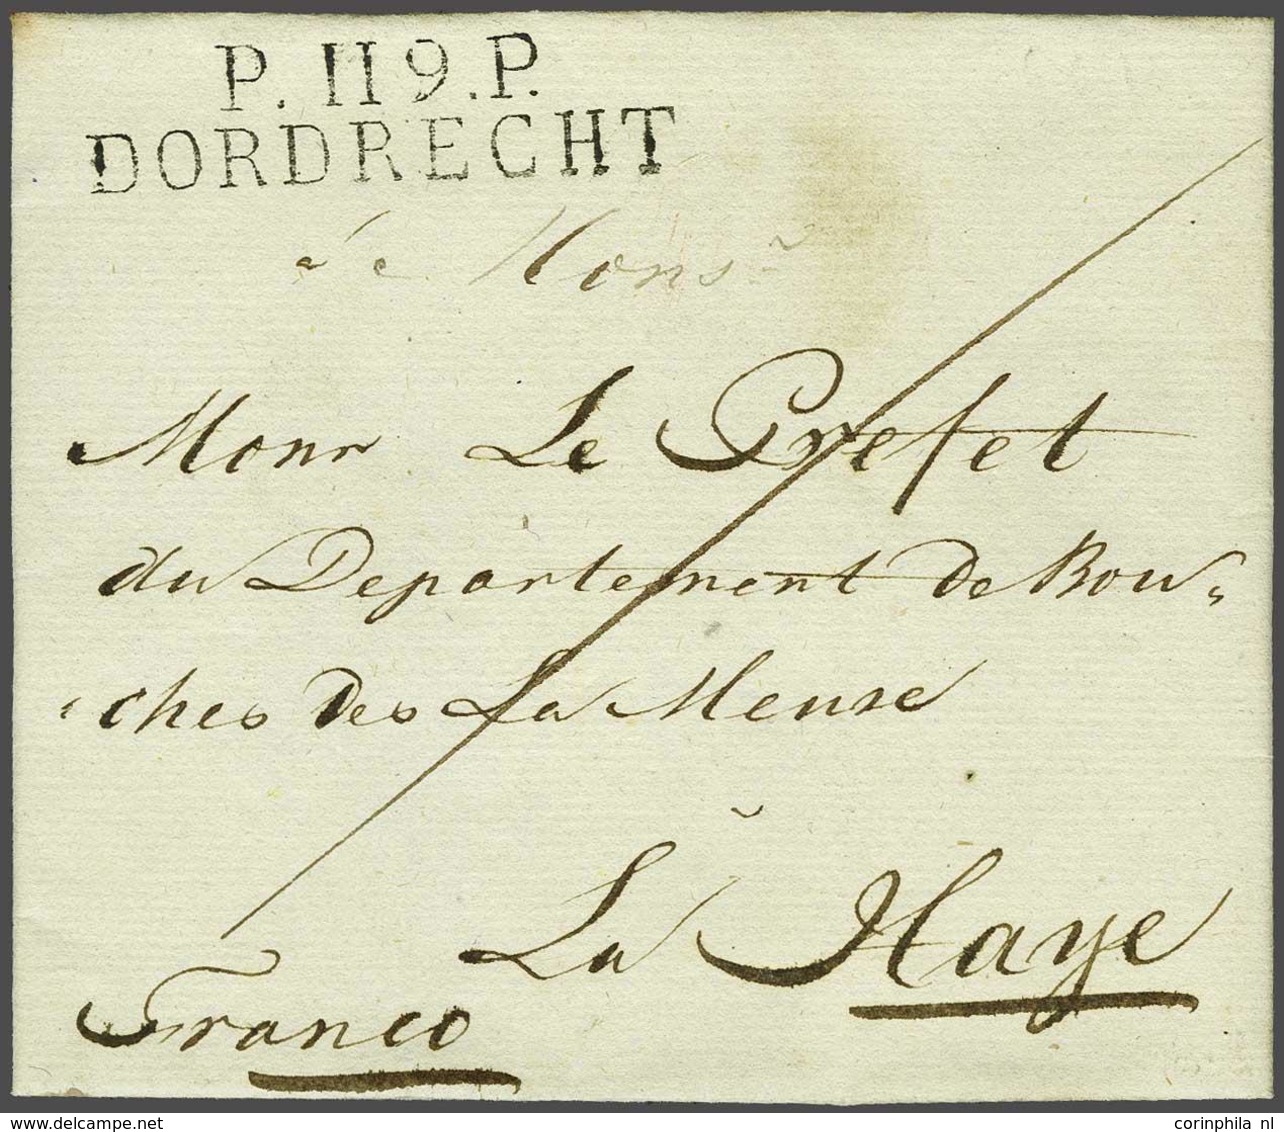 P. 119 .P.
DORDRECHT
Mons
Monr Le Prefet
du Departement de Bou„
„ches des La Meuse
La Haye
Franco
corinphila nl